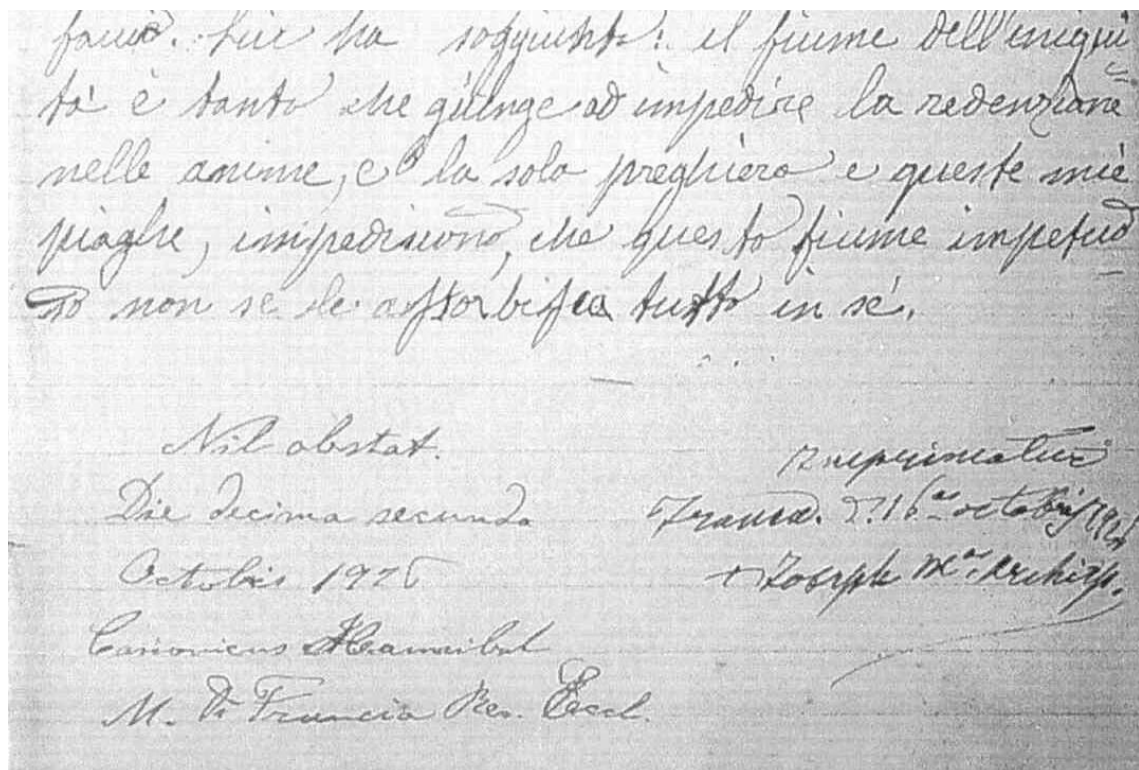 ha soggiunto: il fiume dell'iniqui
tà è tanto che giunge ad impedire la redenzione
nelle anime, e la sola preghiera e queste mie
piaghe, impediscono, che questo fiume impetuo
so non se le assorbisca tutto in sé.
Nil obstat.
Die decima secunda
Octobris 1926
Canonicus Hannibal
M. Di Francia Rev. Eccl.
Imprimatur
16 octobris 1926
+ Joseph M. Archiep.